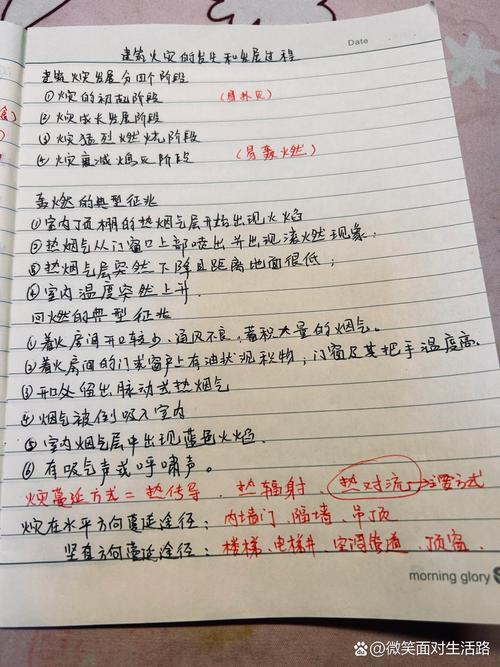 Date
建筑火灾的发生和发展过程
建筑火灾发展分四个阶段
①火灾的初起阶段 (易扑灭)
②火灾成长发展阶段
③火灾猛烈燃烧阶段
④火灾衰减熄灭阶段 (易轰燃)
轰燃的典型征兆
①室内顶棚的热烟气层开始出现火焰
②热烟气从门窗口上部喷出并出现滚燃现象;
③热烟气层突然下降且距离地面很低;
④室内温度突然上升.
回燃的典型征兆
①着火房间开口较少、通风不良,蓄积大量的烟气。
②着火房间的门或窗户上有油状沉积物;门窗及其把手温度高.
③开口处留出脉动式热烟气
④烟气被倒吸入室内
⑤室内烟气层中出现蓝色火焰.
⑥有吸气声或呼啸声。
火灾蔓延方式=热传导、热辐射、热对流→主要方式
火灾在水平方向蔓延途径:内墙门、隔墙、吊顶
竖直方向蔓延途径:楼梯、电梯井、空调管道、顶窗
morning glory
@微笑面对生活路